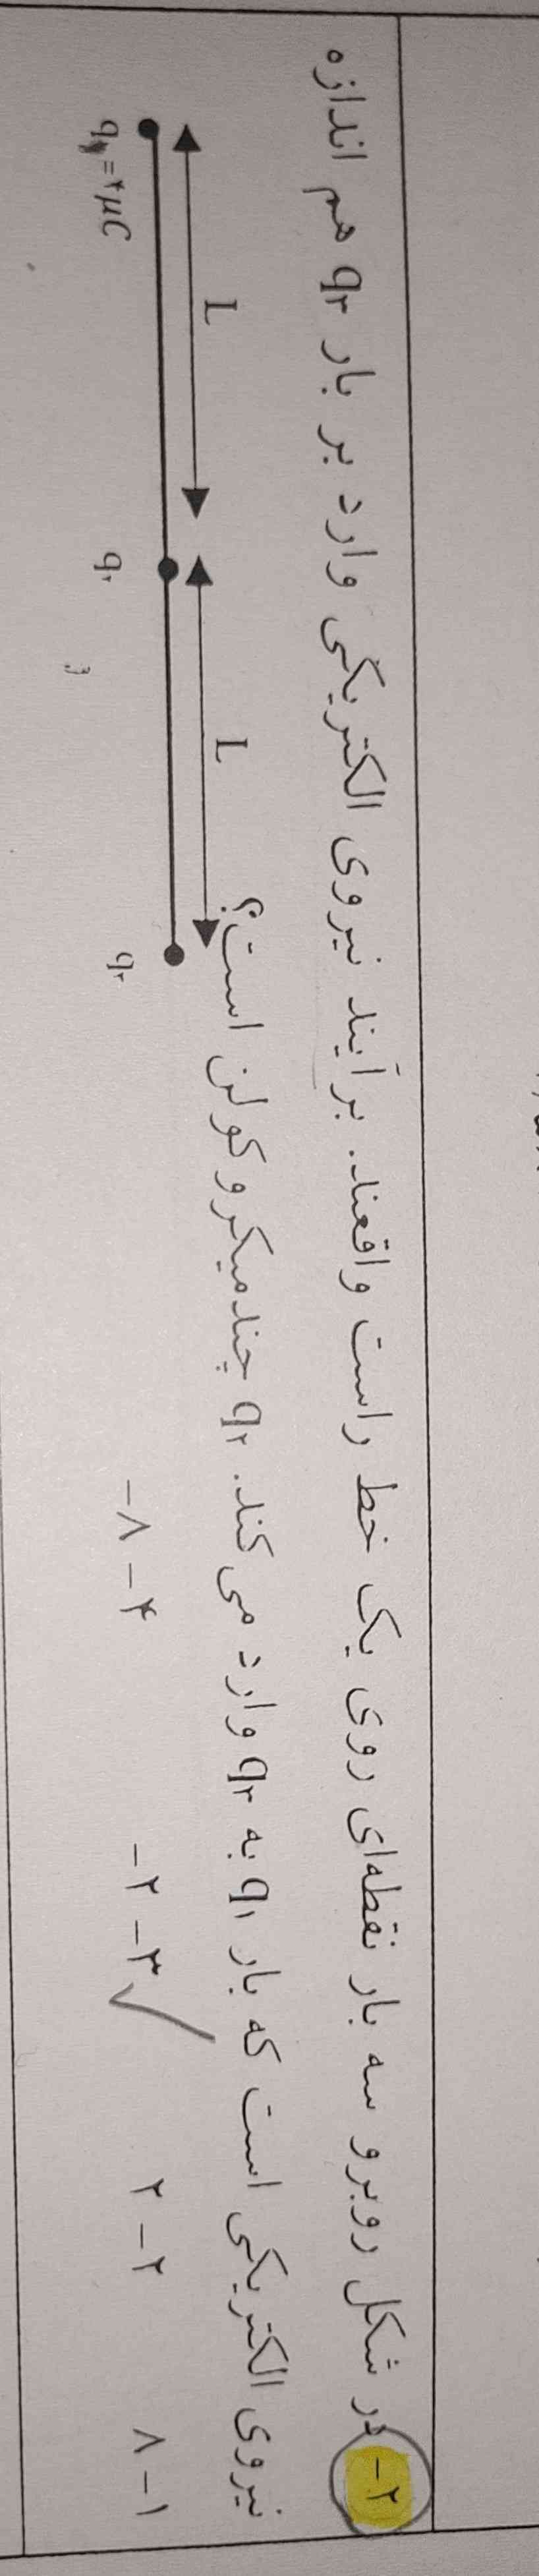 ۲- در شکل روبرو سه بار نقطه‌ای روی یک خط راست واقعند. برآیند نیروی الکتریکی وارد بر بار q۳ هم اندازه
نیروی الکتریکی است که بار q۱ به q۳ وارد می کند. q۲ چندمیکروکولن است؟
L L
q =۲μC q۲ q۳
۱- ۸ ۲- ۲ ۳- ۲- ۴- ۸-